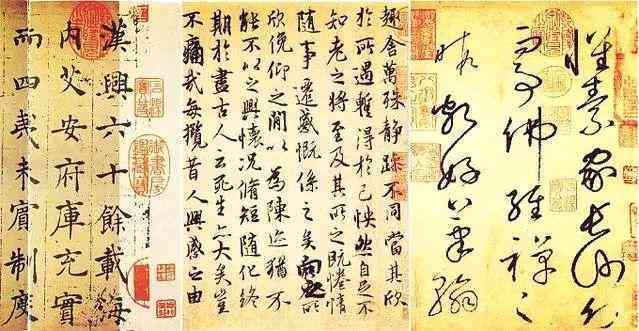 懷素家長沙幼而
事佛經禪之
暇頗好筆翰
趣舍萬殊靜躁不同當其欣
於所遇蹔得於己怏然自足不
知老之將至及其所之既惓情
隨事遷感慨係之矣向之所
欣俛仰之閒以為陳迹猶不
能不以之興懷況脩短隨化終
期於盡古人云死生亦大矣豈
不痛哉每攬昔人興感之由
漢興六十餘載海
內艾安府庫充實
而四夷未賓制度